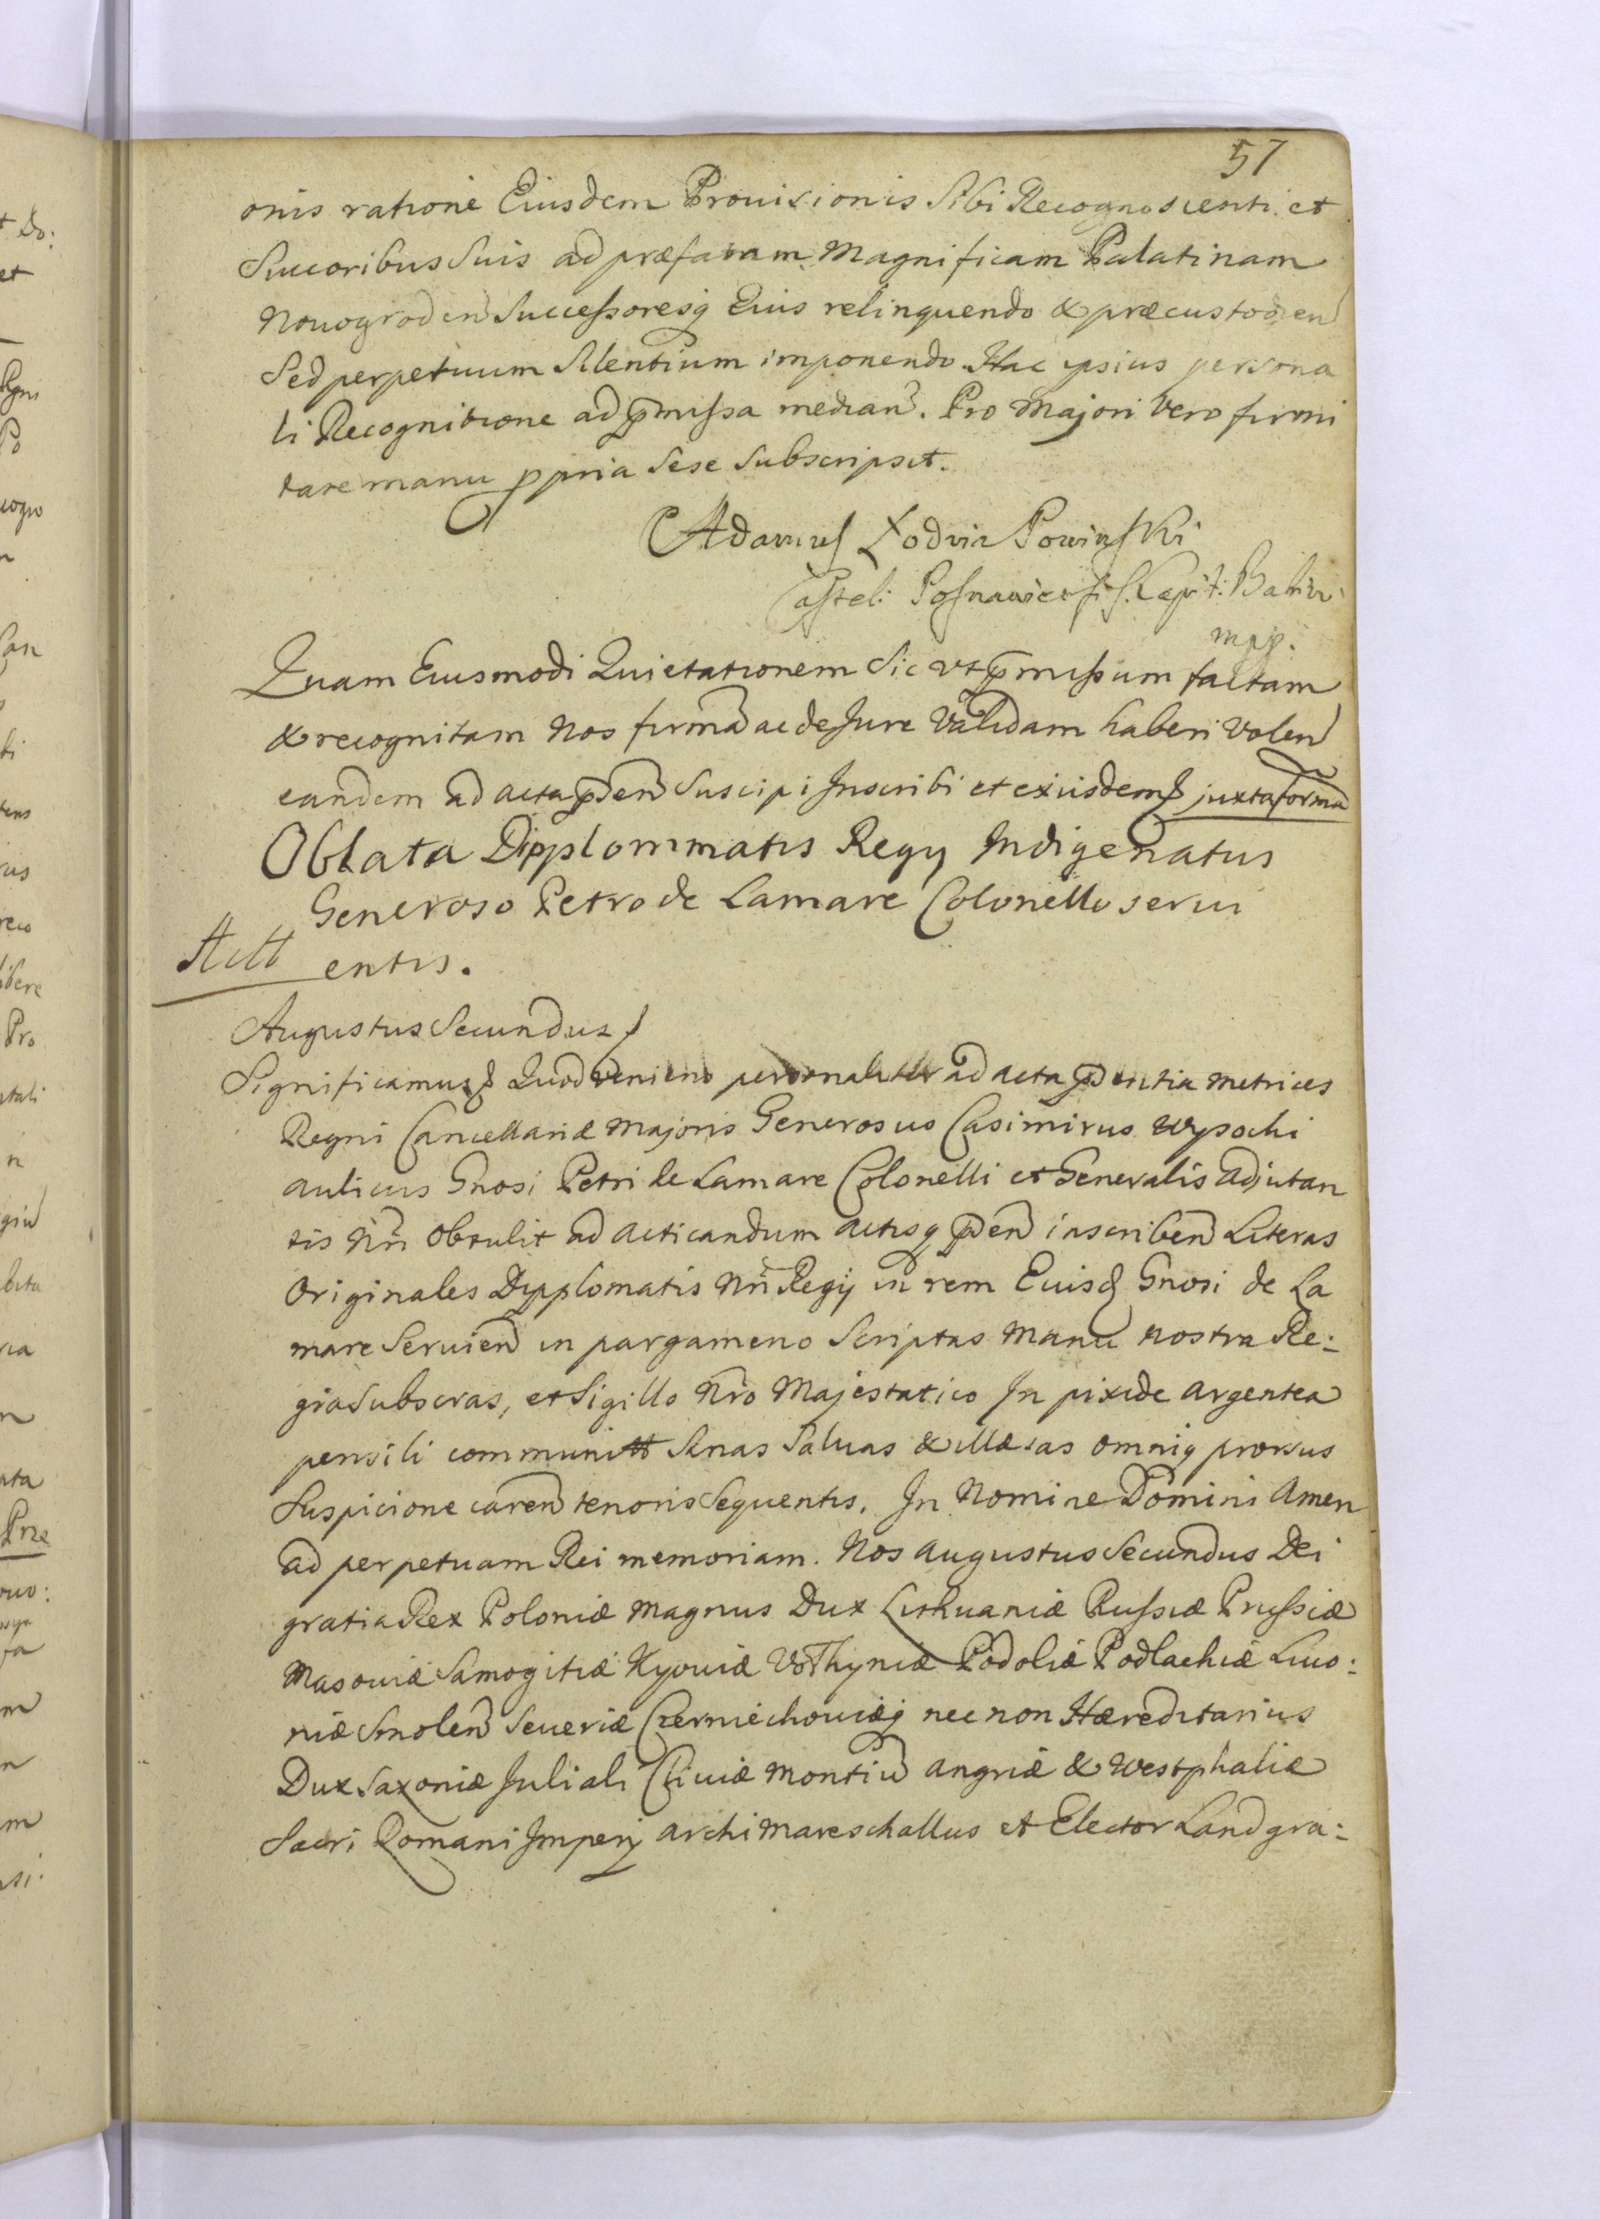 57
onis ratione Eiusdem Prouisionis Sibi Recognoscenti et
Succoribus Suis ad præfatam Magnificam Palatinam
Nouogroden Successoresq Eius relinquendo & præcustodien
Sed perpetuum Silentium imponendo. Hac ipsius persona
li Recognitione ad pmissa median. Pro Majori Vero firmi
tate manu ppria Sese Subscripsit.
Adamus Łodzia Poninski
Castel: Posnaniensis Capit: Babim:
mpp.
Quam Eiusmodi Quietationem Sic vt pmissum factam
& recognitam Nos firma ac de Jure Validam haberi Volen
eandem ad acta pden Suscipi Inscribi et ex iisdem juxta forma
Oblata Dipplommatis Regy Indigenatus
Generoso Petro de Lamare Colonello serui
entis.
Augustus Secundus
Significamus Quod veniens personaliter ad acta pdentia Metrices
Regni Cancellariæ Majoris Generosus Casimirus Wysocki
aulicus Gnosi Petri le Lamare Colonelli et Generalis Adjutan
tis Nri Obtulit ad acticandum actisq pden inscriben Literas
Originales Dypplomatis Nri Regij in rem Eiusd Gnosi de La
mare Seruien in pargameno Scriptas Manu Nostra Re:
gia Subscras, et Sigillo Nro Majestatico In pixide argentea
pensili communitt Sanas Saluas & illæsas omniq prorsus
Suspicione caren tenoris Sequentis. In Nomine Domini Amen
ad perpetuam Rei memoriam. Nos Augustus Secundus Dei
gratia Rex Poloniæ Magnus Dux Lithuaniæ Russiæ Prussiæ
Masouiæ Samogitiæ Kyouiæ Volhyniæ Podoliæ Podlachiæ Liuo:
niæ Smolen Seueriæ Czerniechouiæq nec non Hæreditarius
Dux Saxoniæ Juliali Cliuiæ Montiu Angriæ & Westphaliæ
Sacri Romani Imperij Archi Mareschallus et Elector Landgra: